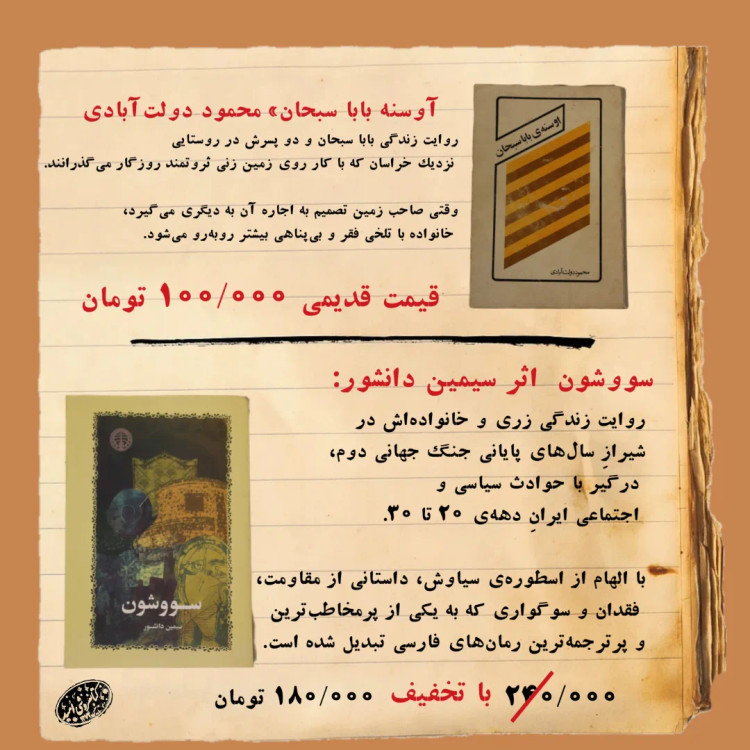 آوسنه بابا سبحان» محمود دولت‌آبادی
روایت زندگی بابا سبحان و دو پسرش در روستایی
نزدیك خراسان که با کار روی زمین زنی ثروتمند روزگار می‌گذرانند.
وقتی صاحب زمین تصمیم به اجاره آن به دیگری می‌گیرد،
خانواده با تلخی فقر و بی‌پناهی بیشتر روبه‌رو می‌شود.
قیمت قدیمی ۱۰۰/۰۰۰ تومان
اوسنه‌ی بابا سبحان
محمود دولت‌آبادی
سووشون اثر سیمین دانشور:
روایت زندگی زری و خانواده‌اش در
شیرازِ سال‌های پایانی جنگ جهانی دوم،
درگیر با حوادث سیاسی و
اجتماعی ایرانِ دهه‌ی ۲۰ تا ۳۰.
با الهام از اسطوره‌ی سیاوش، داستانی از مقاومت،
فقدان و سوگواری که به یکی از پرمخاطب‌ترین
و پرترجمه‌ترین رمان‌های فارسی تبدیل شده است.
سووشون
سیمین دانشور
۲۴۰/۰۰۰ با تخفیف ۱۸۰/۰۰۰ تومان